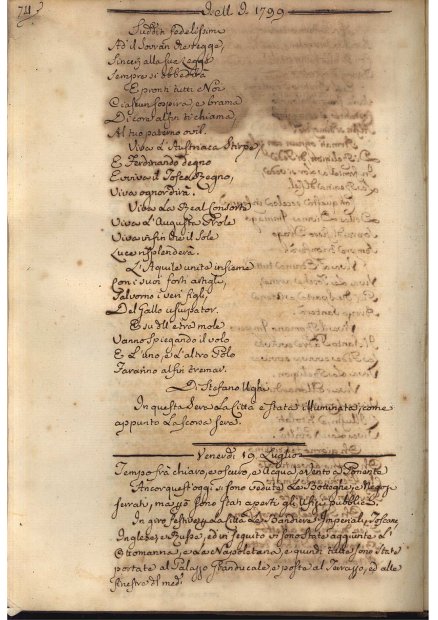 711
dell' A. 1799
Sudditi fedelissimi
Ad'il Sovran che regge,
Sinceri alla sua Legge
Sempre si obbedirà
E pronti tutti a Noi
Ciascun sospira, e brama
Di core alfin ti chiama,
Al tuo paterno ovil.
Viva l'Austriaca Stirpe,
E Ferdinando degno
Evviva il Tosco Regno,
Viva ognor dirà.
Viva La Real Consorte
Viva L'Augusta Prole
Viva infin che il Sole
Luce risplenderà.
L'Aquile unite insieme
Con i suoi forti artigli,
Salvorno i veri figli,
Del Gallo usurpator.
E su dell'etra mole
Vanno spiegando il volo
E L'uno, e L'altro Polo
Faranno alfin tremar.
Di Stefano Ughi
In questa Sera La Città è stata illuminata, come
appunto La scorsa sera.
Venerdì 19 Luglio
Tempo frà chiaro, e oscuro, e acqua, e vento a Ponente
Ancor quest'oggi si sono vedute Le Botteghe, e Negozi
serrati, ma sono stati aperti gli Ufizi pubblici.
In giro festivo La Città Le Bandiere Imperiali, Toscane
Inglese, e Russe, ed in seguito vi sono state aggiunte L'
Ottomanna, e La Napoletana, e quindi tutte sono state
portate al Palazzo Granducale, e poste al Terrazzo, ed alle
finestre del med.